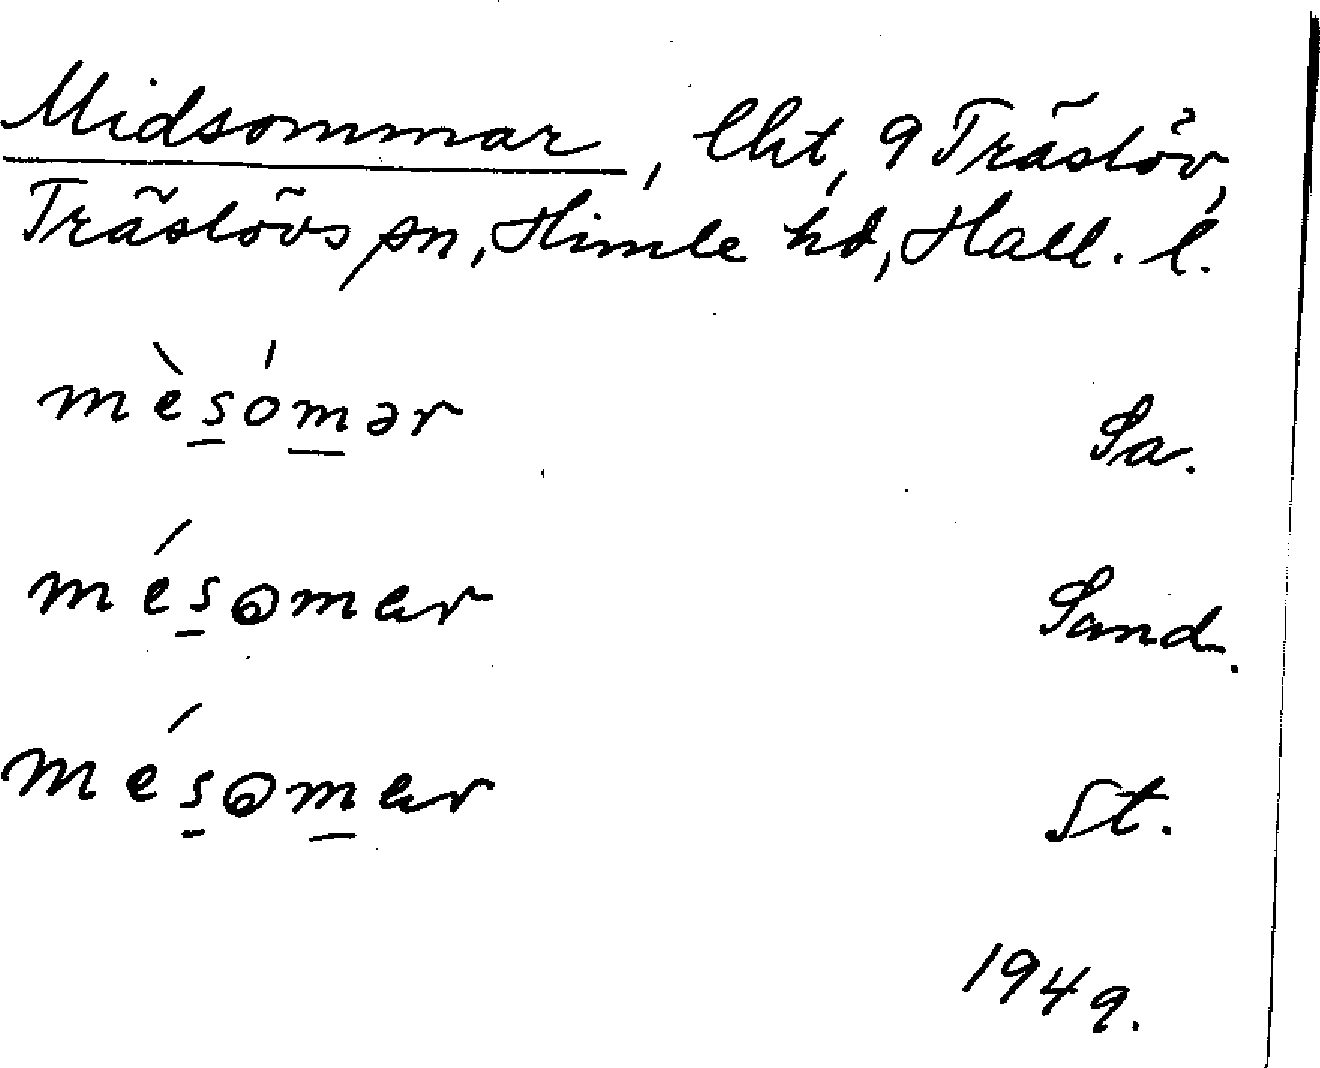 Midsommar, lht, 9 Träslöv,
Träslövs sn, Himle hd, Hall. l.
mèsómər Sa.
mésomar Sand.
mésomar St.
1949.